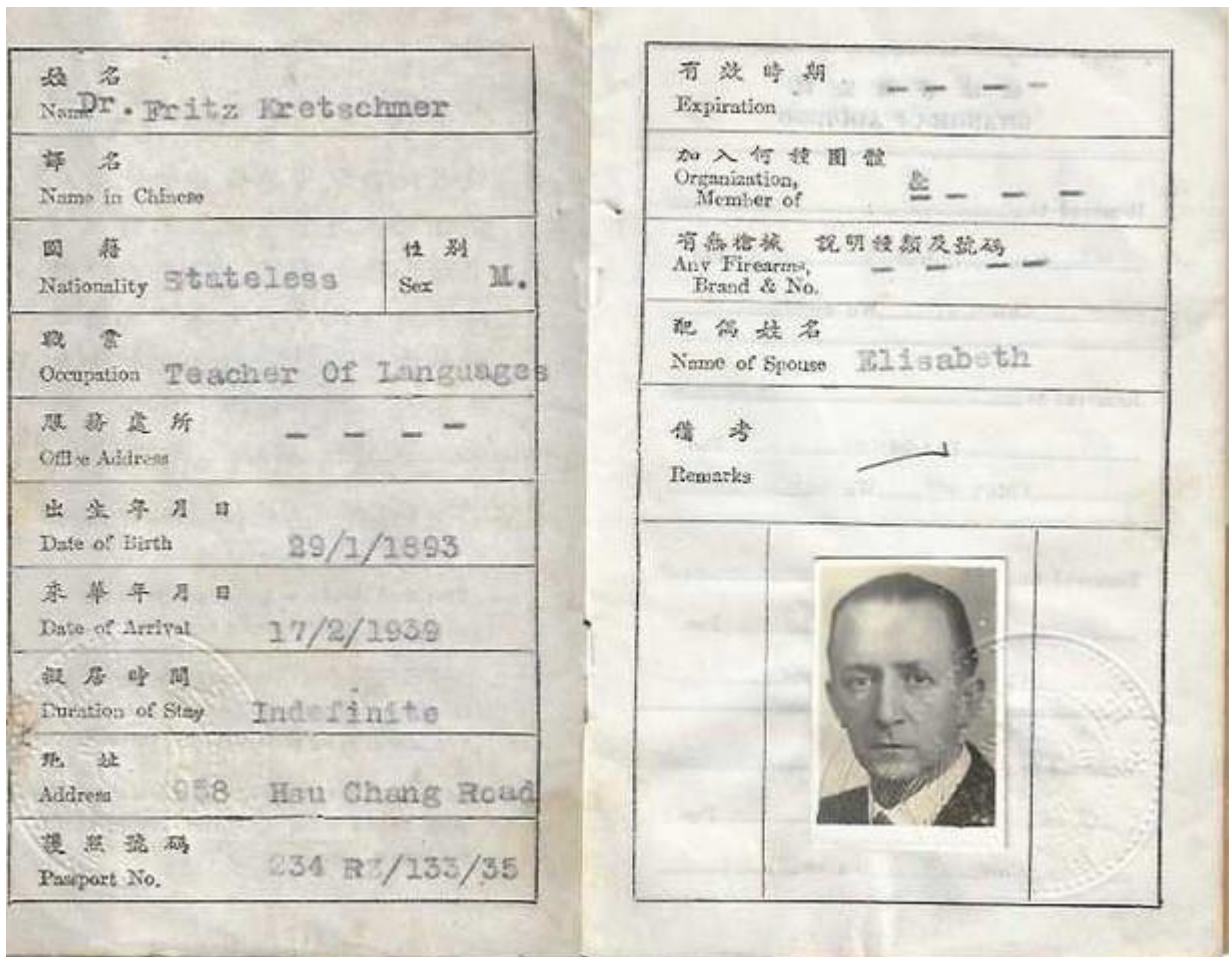 姓名
Name Dr. Fritz Kretschmer
譯名
Name in Chinese
國籍
Nationality Stateless
性別
Sex M.
職業
Occupation Teacher Of Languages
服務處所
Office Address - - - -
出生年月日
Date of Birth 29/1/1893
來華年月日
Date of Arrival 17/2/1939
擬居時間
Duration of Stay Indefinite
地址
Address 958 Hsu Chang Road
護照號碼
Passport No. 234 /133/35
有效時期
Expiration - - - -
加入何種團體
Organization,
Member of - - - -
有無槍械 說明種類及號碼
Any Firearms, - - - -
Brand & No.
配偶姓名
Name of Spouse Elisabeth
備考
Remarks